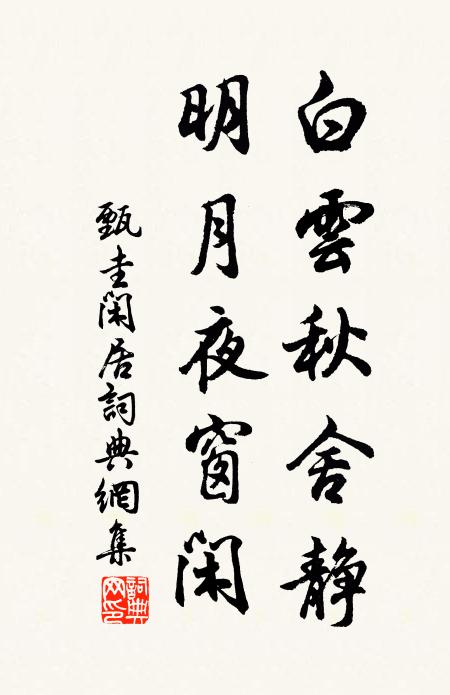 白雲秋舍靜
明月夜窗閑
甄圭閑居詞典網集
詞典網印